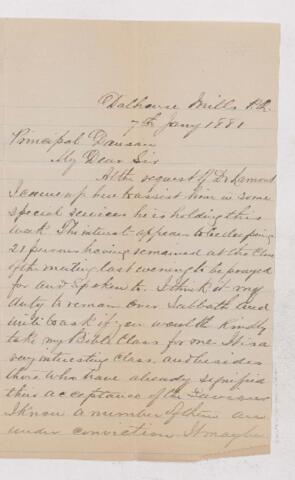 Dalhousie Mills P.Q.
7th Jany 1881
Principal Dawson
My Dear Sir
At the request of Dr Lamont
I came up here to assist him in some
special services he is holding this
week. The interest appears to be deepening
21 persons having remained at the close
of the meeting last evening to be prayed
for and spoken to. I think it my
duty to remain over Sabbath and
write to ask if you would kindly
take my Bible Class for me. It is a
very interesting class and besides
those who have already signified
their acceptance of the Saviour
I know a number of them are
under conviction. It may be